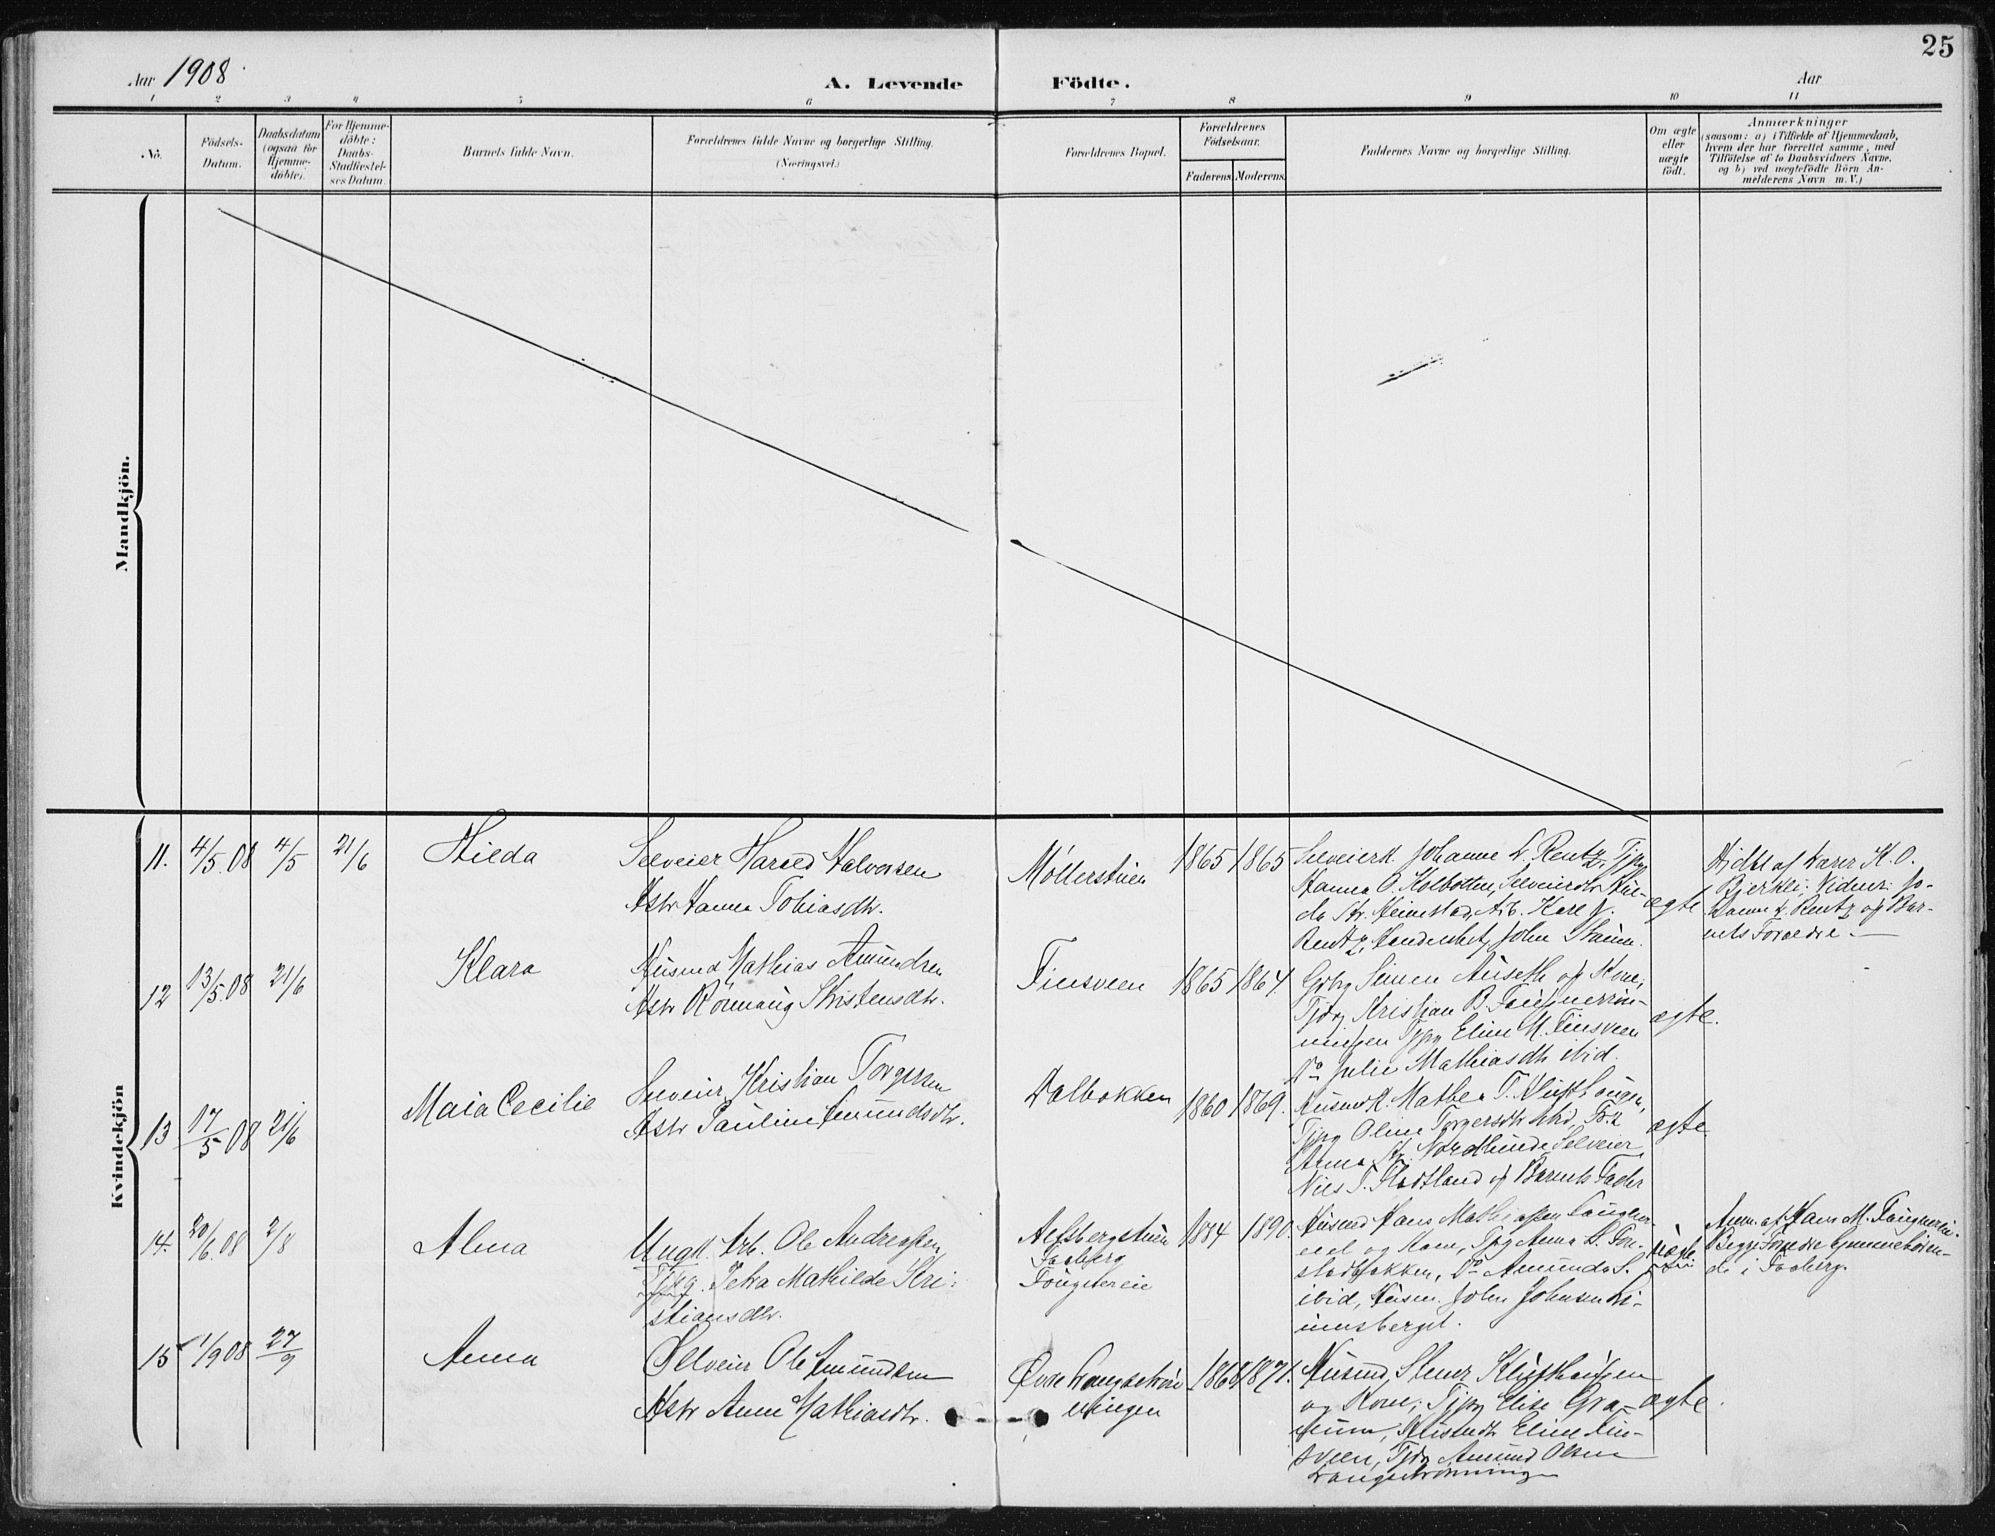 25
Aar 1908.
A. Levende Födte.
Aar
1 2 3 4 5 6 7 8 9 10 11
No.
Födsels-
Datum.
Daabsdatum
(ogsaa for
Hjemme-
döbte).
For Hjemme-
döbte:
Daabs-
Stadfæstel-
ses Datum.
Barnets fulde Navn.
Forældrenes fulde Navne og borgerlige Stilling.
(Næringsvei.)
Forældrenes Bopæl.
Forældrenes
Födselsaar.
Faderens. Moderens.
Faddernes Navne og borgerlige Stilling.
Om ægte
eller
uægte
födt.
Anmærkninger
(saasom: a) i Tilfælde af Hjemmedaab,
hvem der har forrettet samme, med
Tilföielse af to Daabsvidners Navne,
og b) ved uægtefödte Börn An-
melderens Navn m. V.)
Mandkjön.
Kvindekjön
11. 4/5 08 4/5 21/6
Hilda
Selveier Harald Halvorsen
Hstr Hanna Tobiasdtr.
Möllerstuen
1865 1865
Selveierk. Johanne L. Rentz, Tjpg
Hanna O. Kolbotten, Selveierdtr Hil-
da Heimstad, Arb. Karl J.
Rentz, John
ægte
Hjdbt af Lærer K. O.
Bjerkli; Vidner: Jo-
hanne L. Rentz og Bar-
nets Forældre.
12 13/5 08 21/6
Klara
Husmd Mathias Amundsen
Hstr Rönnaug Kristensdtr.
Finsveen
1865 1864.
Gbrg Simen Auseth og Kone,
Tjdrg Kristian B. Faugnerrön-
ningen Tjpg Eline M. Finsveen
Do Julie Mathiasdtr ibid.
ægte.
13 17/5 08 21/6
Maia Cecilie
Selveier Kristian Torgersen
Hstr Pauline Amundsdtr.
Dalbakken
1860 1869.
Husmdk. Mathea T. Klufthougen,
Tjpg Oline Torgersdtr ibid,
Anna Nordlunde Selveier
Nils T. Fladtland og Barnets Fader
ægte.
14. 20/6 08 2/8
Alma
Ungk. Arb. Ole Andreassen,
Tjpg. Petra Mathilde Kri-
stiansdtr.
Alfsbergstuen
Faaberg
Fougnereie
1884 1890.
Husmd Hans Mathiassen Faugner-
eiet og Kone, Tjpg Anna
stadbakken, Do Amunda S.
ibid, Husm. John Johnsen Li-
umsberget.
uægte
Anm. af Hans M. Faugnereie.
Begge Forældre hjemmehören-
de i Faaberg.
15 1/9 08 27/9
Anna
Selveier Ole Amundsen
Hstr Anne Mathiasdtr.
Övre Langseterön-
ningen
1868 1871.
Husmd Stener Klufthaugen
og Kone, Tjpg Elise Gra-
num, Husmdtr Eline Fin-
sveen, Tjdr Amund Olsen
Langseterönningen
ægte.